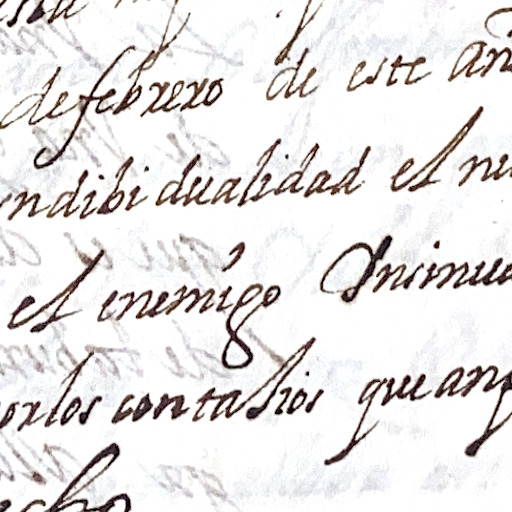 de febrero de este añ
ndibidualidad el nu
el enemigo Insinua
orlos contatios que an
echo